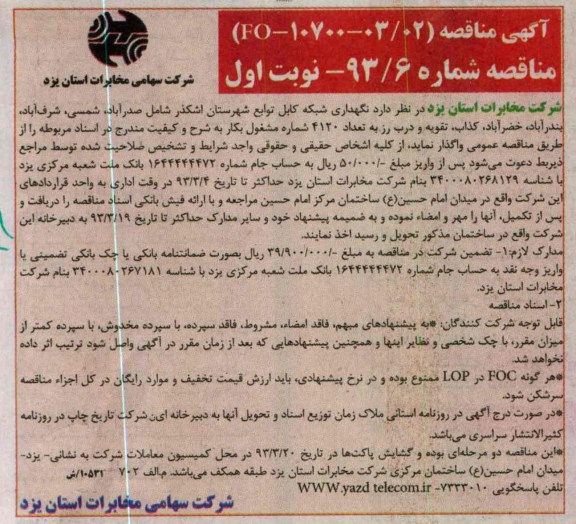 آگهی مناقصه (FO-۱۰۷۰۰-۰۳/۰۲)
مناقصه شماره ۹۳/۶- نوبت اول
شرکت سهامی مخابرات استان یزد
شرکت مخابرات استان یزد در نظر دارد نگهداری شبکه کابل توابع شهرستان اشکذر شامل صدرآباد، شمسی، شرف‌آباد،
بندرآباد، خضرآباد، کذاب، تقویه و درب رز به تعداد ۴۱۲۰ شماره مشغول بکار به شرح و کیفیت مندرج در اسناد مربوطه را از
طریق مناقصه عمومی واگذار نماید، از کلیه اشخاص حقیقی و حقوقی واجد شرایط و تشخیص صلاحیت شده توسط مراجع
ذیربط دعوت می‌شود پس از واریز مبلغ ۵۰/۰۰۰/- ریال به حساب جام شماره ۱۶۴۴۴۴۴۴۷۲ بانک ملت شعبه مرکزی یزد
با شناسه ۳۴۰۰۰۸۰۲۶۸۱۲۹ بنام شرکت مخابرات استان یزد حداکثر تا تاریخ ۹۳/۳/۴ در وقت اداری به واحد قراردادهای
این شرکت واقع در میدان امام حسین(ع) ساختمان مرکز امام حسین مراجعه و با ارائه فیش بانکی اسناد مناقصه را دریافت و
پس از تکمیل، آنها را مهر و امضاء نموده و به ضمیمه پیشنهاد خود و سایر مدارک حداکثر تا تاریخ ۹۳/۳/۱۹ به دبیرخانه این
شرکت واقع در ساختمان مذکور تحویل و رسید اخذ نمایند.
مدارک لازم:۱- تضمین شرکت در مناقصه به مبلغ ۳۹/۹۰۰/۰۰۰/- ریال بصورت ضمانتنامه بانکی یا چک بانکی تضمینی یا
واریز وجه نقد به حساب جام شماره ۱۶۴۴۴۴۴۴۷۲ بانک ملت شعبه مرکزی یزد با شناسه ۳۴۰۰۰۸۰۲۶۷۱۸۱ بنام شرکت
مخابرات استان یزد.
۲- اسناد مناقصه
قابل توجه شرکت کنندگان: *به پیشنهادهای مبهم، فاقد امضاء، مشروط، فاقد سپرده، با سپرده مخدوش، با سپرده کمتر از
میزان مقرر، با چک شخصی و نظایر اینها و همچنین پیشنهادهایی که بعد از زمان مقرر در آگهی واصل شود ترتیب اثر داده
نخواهد شد.
*هر گونه FOC در LOP ممنوع بوده و در نرخ پیشنهادی، باید ارزش قیمت تخفیف و موارد رایگان در کل اجزاء مناقصه
سرشکن شود.
*در صورت درج آگهی در روزنامه استانی ملاک زمان توزیع اسناد و تحویل آنها به دبیرخانه این شرکت تاریخ چاپ در روزنامه
کثیرالانتشار سراسری می‌باشد.
*این مناقصه دو مرحله‌ای بوده و گشایش پاکت‌ها در تاریخ ۹۳/۳/۲۰ در محل کمیسیون معاملات شرکت به نشانی- یزد-
میدان امام حسین(ع) ساختمان مرکزی شرکت مخابرات استان یزد طبقه همکف می‌باشد. م.الف ۷۰۲ ۱۰۵۳۱/ش
تلفن پاسخگویی ۷۳۳۳۰۱۰- WWW.yazd telecom.ir
شرکت سهامی مخابرات استان یزد